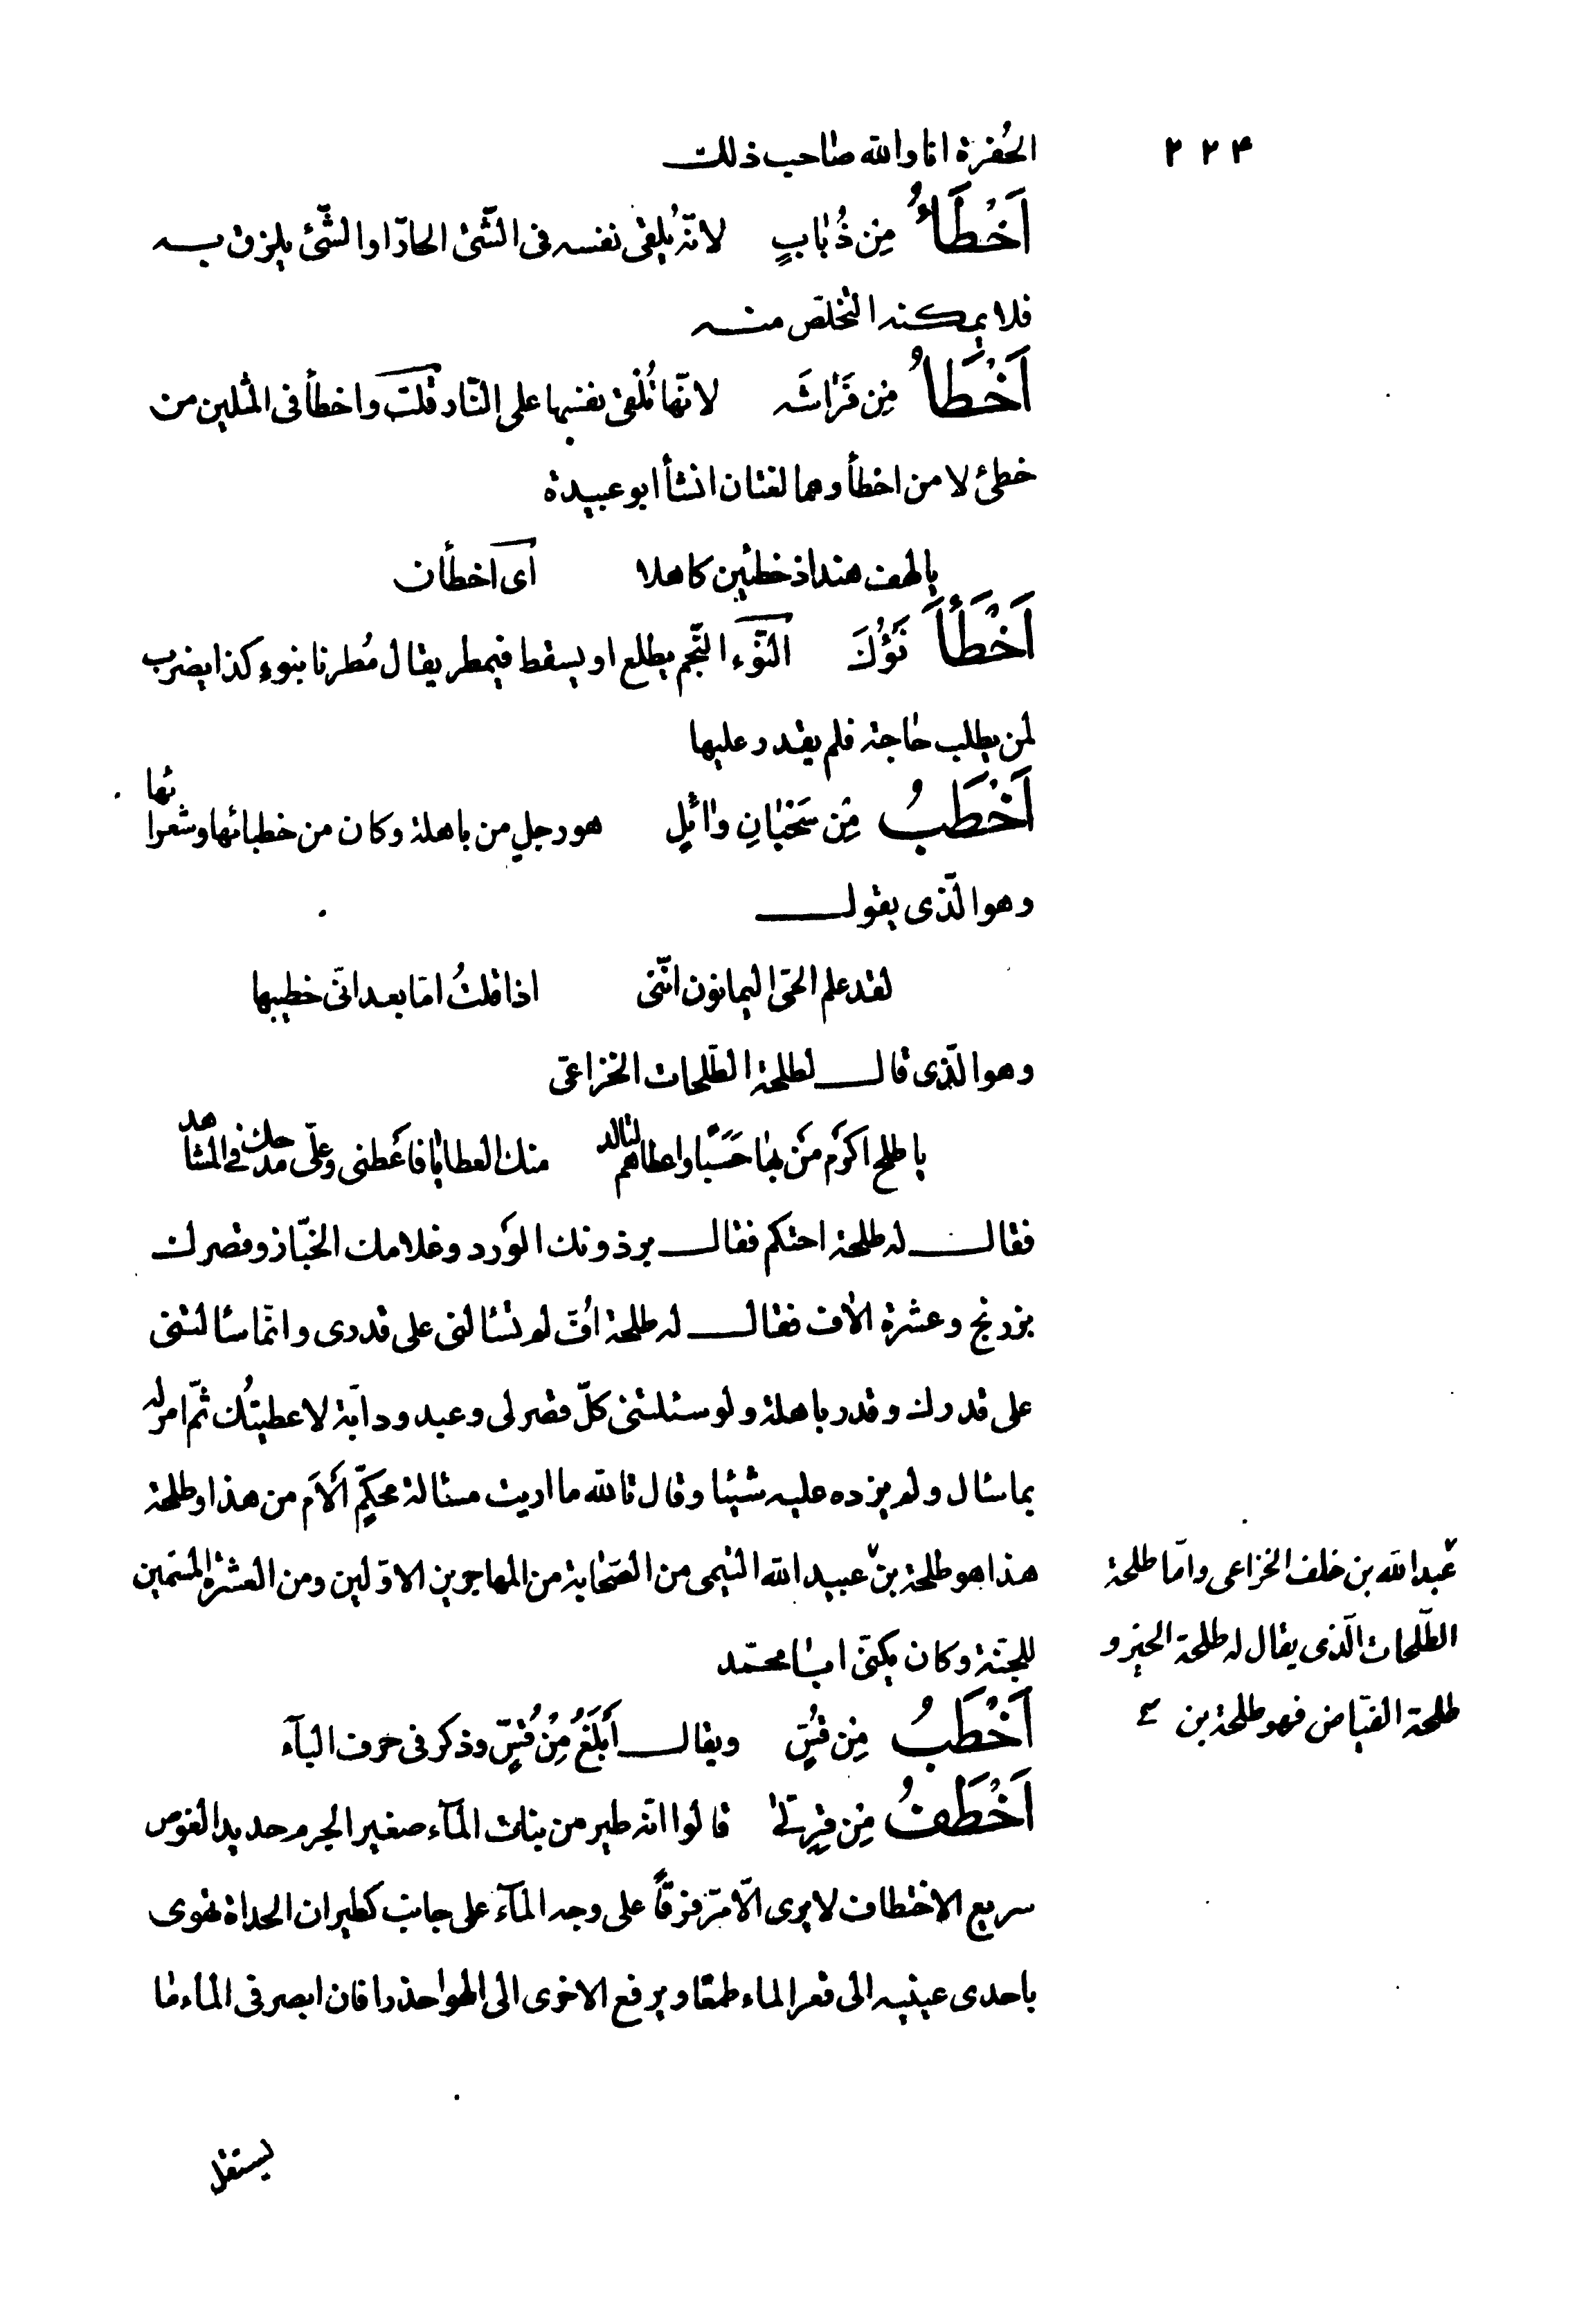 ۲۲۴
الحُفرة انا والله صٰاحب ذلك
اَخْطَأُ مِن ذُبٰابٍ لانّه يُلقى نفسه فى الشّئ الحادّ او الشّئ يلزق به
فلا يمكنه التخلّص منه
اَخْطَاُ مِن فَرٰاشَه لانّها تُلقى نفسها على النّار قلت واخطأ فى المثلين من
خطئ لا من اخطأ وهما لغتان انشأ ابو عبيدة
يا لهف هند اذ خطئين كاهلا اى اخطأن
اَخْطَأَ نَوْءُكَ النّوْء النّجم يطلع او يسقط فيمطر يقال مُطرنا بنوء كذا يضرب
لمن يطلب حٰاجة فلم يقدر عليها
اَخْطَبُ مِن سَحْبٰانِ وٰائلٍ هو رجل من باهلة وكان من خطبائها وشعرائها
وهو الّذى يقول
لقد علم الحىّ اليمانون انّنى اذا قلتُ امّا بعد انّى خطيبها
وهو الّذى قال لطلحة الطّلحات الخزاعىّ
يا طلح اكرَم مَن بهٰا حَسَبًا واعطاهم لتالد منك العطايٰا فاَعطنى وعلىّ مدحك فى المشاهد
فقال له طلحة احتكم فقال برذونك الوَرد وغلامك الخبّاز وقصرك
بزرنج وعشرة الاف فقال له طلحة اُفّ لم تسٔالنى على قدرى وانّما سٔالتنى
على قدرك وقدر باهلة ولو سئلتنى كلّ قصر لى وعبد ودابّة لاعطيتُك ثمّ امر له
بما سٔال ولم يزده عليه شيئا وقال تالله ما اريت مسٔالة محكّم اَلأم من هذا وطلحة
هذا هو طلحة بن عبيد الله التيمى من الصّحٰابة من المهاجرين الاوّلين ومن العشرة المسمّين
للجنّة وكان يكنّى ابٰا محمّد
عبد الله بن خلف الخزاعى وامّا طلحة
الطّلحات الّذى يقال له طلحة الخير و
طلحة الفيّاض فهو طلحة بن
اَخْطَبُ مِن قُسٍّ ويقال اَبْلَغُ مِنْ قُسٍّ وذكر فى حرف البآء
اَخْطَفُ مِن قِرِلّىٰ قالوا انّه طير من بنات المآء صغير الجرم حديد الغوص
سريع الاختطاف لا يرى الّا مترفرقاً على وجه المآء على جانب كطيران الحداة تهوى
باحدى عينيه الى قعر الماء طمعًا ويرفع الاخرى الى الهوا حذرا فان ابصر فى المٰاء مٰا
يستقل